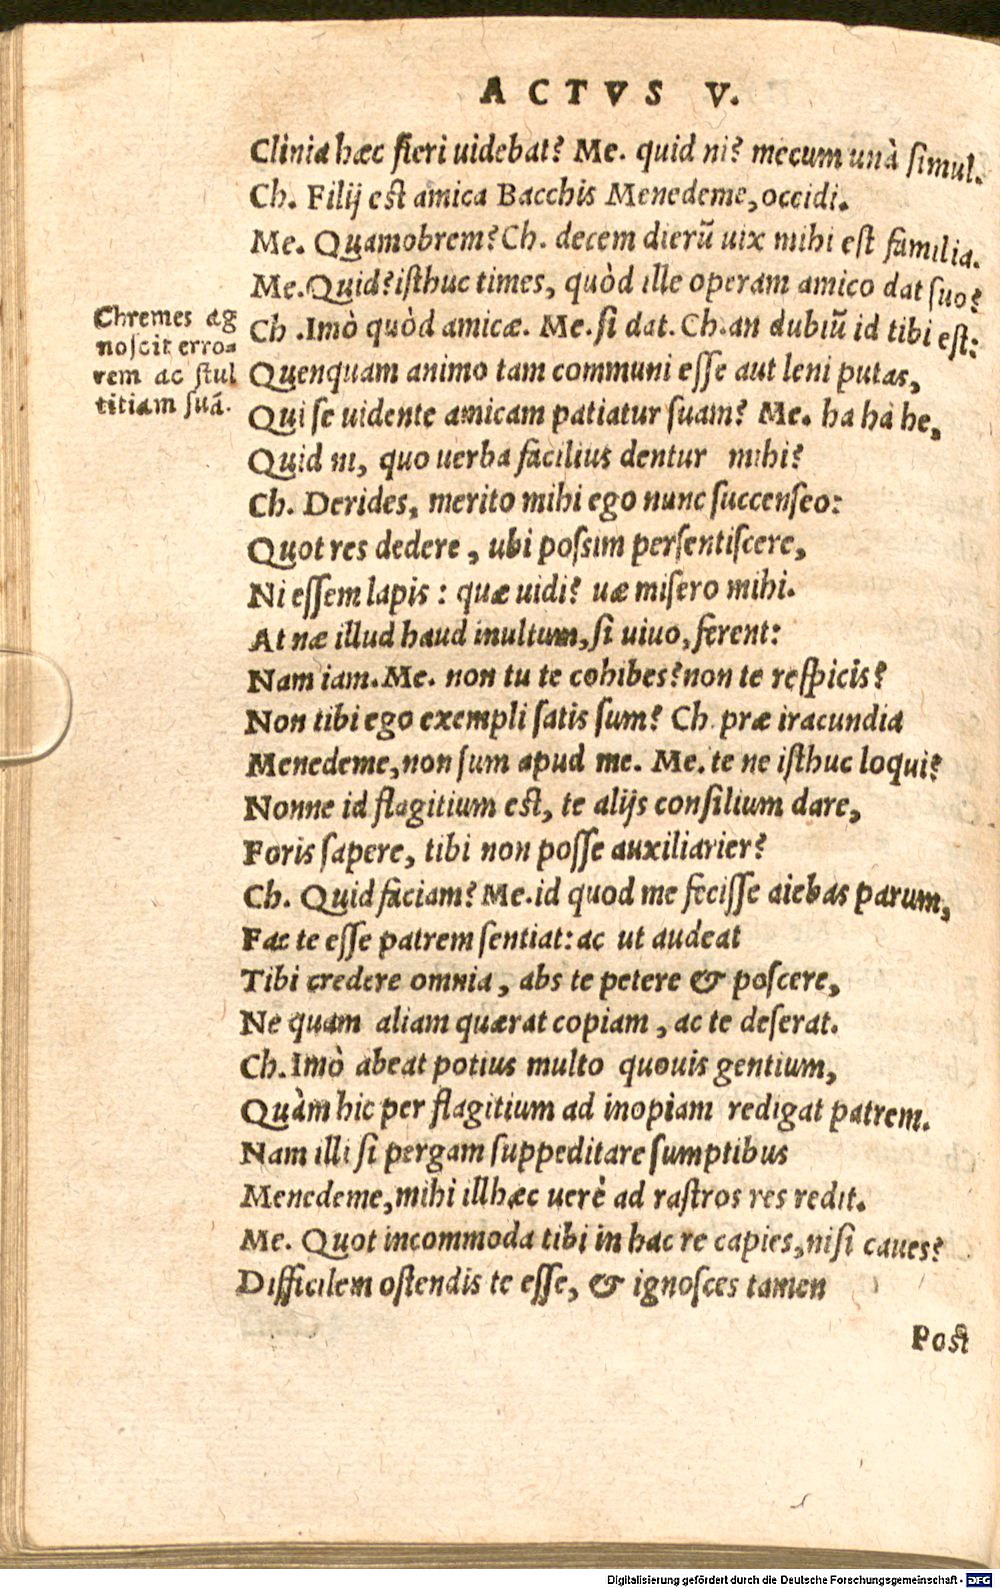 ACTVS V.
Clinia hæc fieri uidebat? Me. quid ni? mecum unà simul.
Ch. Filij est amica Bacchis Menedeme, occidi.
Me. Quamobrem? Ch. decem dierũ uix mihi est familia.
Me. Quid? isthuc times, quòd ille operam amico dat suo?
Chremes ag
noscit erro-
rem ac stul
titiam suã.
Ch. Imò quòd amicæ. Me. si dat. Ch. an dubiũ id tibi est:
Quenquam animo tam communi esse aut leni putas,
Qui se uidente amicam patiatur suam? Me. ha há he,
Quid ni, quo uerba facilius dentur mihi?
Ch. Derides, merito mihi ego nunc succenseo:
Quot res dedere, ubi possim persentiscere,
Ni essem lapis: quæ uidi? uæ misero mihi.
At næ illud haud inultum, si uiuo, ferent:
Nam iam. Me. non tu te cohibes? non te respicis?
Non tibi ego exempli satis sum? Ch præ iracundia
Menedeme, non sum apud me. Me. te ne isthuc loqui?
Nonne id flagitium est, te alijs consilium dare,
Foris sapere, tibi non posse auxiliarier?
Ch. Quid faciam? Me. id quod me fecisse aiebas parum,
Fac te esse patrem sentiat: ac ut audeat
Tibi credere omnia, abs te petere & poscere,
Ne quam aliam quærat copiam, ac te deserat.
Ch. Imò abeat potius multo quouis gentium,
Quàm hic per flagitium ad inopiam redigat patrem.
Nam illi si pergam suppeditare sumptibus
Menedeme, mihi illhæc uerè ad rastros res redit.
Me. Quot incommoda tibi in hac re capies, nisi caues?
Difficilem ostendis te esse, & ignosces tamen
Post
Digitalisierung gefördert durch die Deutsche Forschungsgemeinschaft - DFG